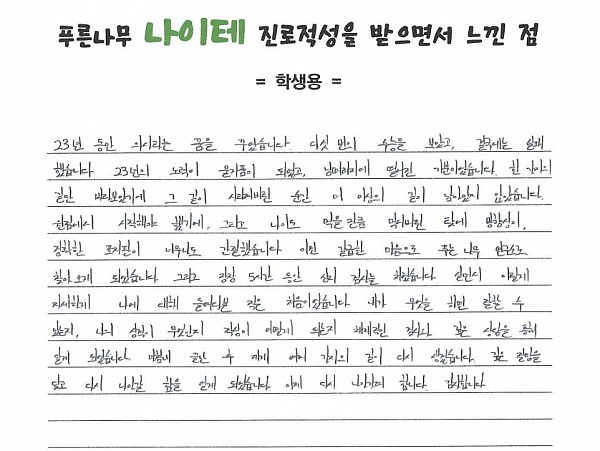 푸른나무 나이테 진로적성을 받으면서 느낀 점
= 학생용 =
23년 동안 의사라는 꿈을 꾸었습니다. 다섯 번의 수능을 보았고, 결국에는 실패
했습니다. 23년의 노력이 물거품이 되었고, 낭떠러지에 떨어진 기분이었습니다. 한 가지의
길만 바라보았기에 그 길이 사라져버린 순간 더 이상의 길이 남아있지 않았습니다.
원점에서 시작해야 했기에, 그리고 나이도 먹을 만큼 먹어버린 탓에 방향성이,
정확한 표지판이 너무나도 간절했습니다. 이런 절급한 마음으로 푸른나무 연구소로
찾아오게 되었습니다. 그리고 장장 5시간 동안 심리 검사를 하였습니다. 살면서 이렇게
자세하게 나에 대해 들여다본 적은 처음이었습니다. 내가 무엇을 하면 잘할 수
있는지, 나의 성격이 무엇인지 적성이 어떻게 되는지 체계적인 검사와 깊은 상담을 통해
알게 되었습니다. 마침내 끝난 후 제게 여러 가지의 길이 다시 생겼습니다. 깊은 절망을
딛고 다시 나아갈 힘을 얻게 되었습니다. 이제 다시 나아가려 합니다. 감사합니다.